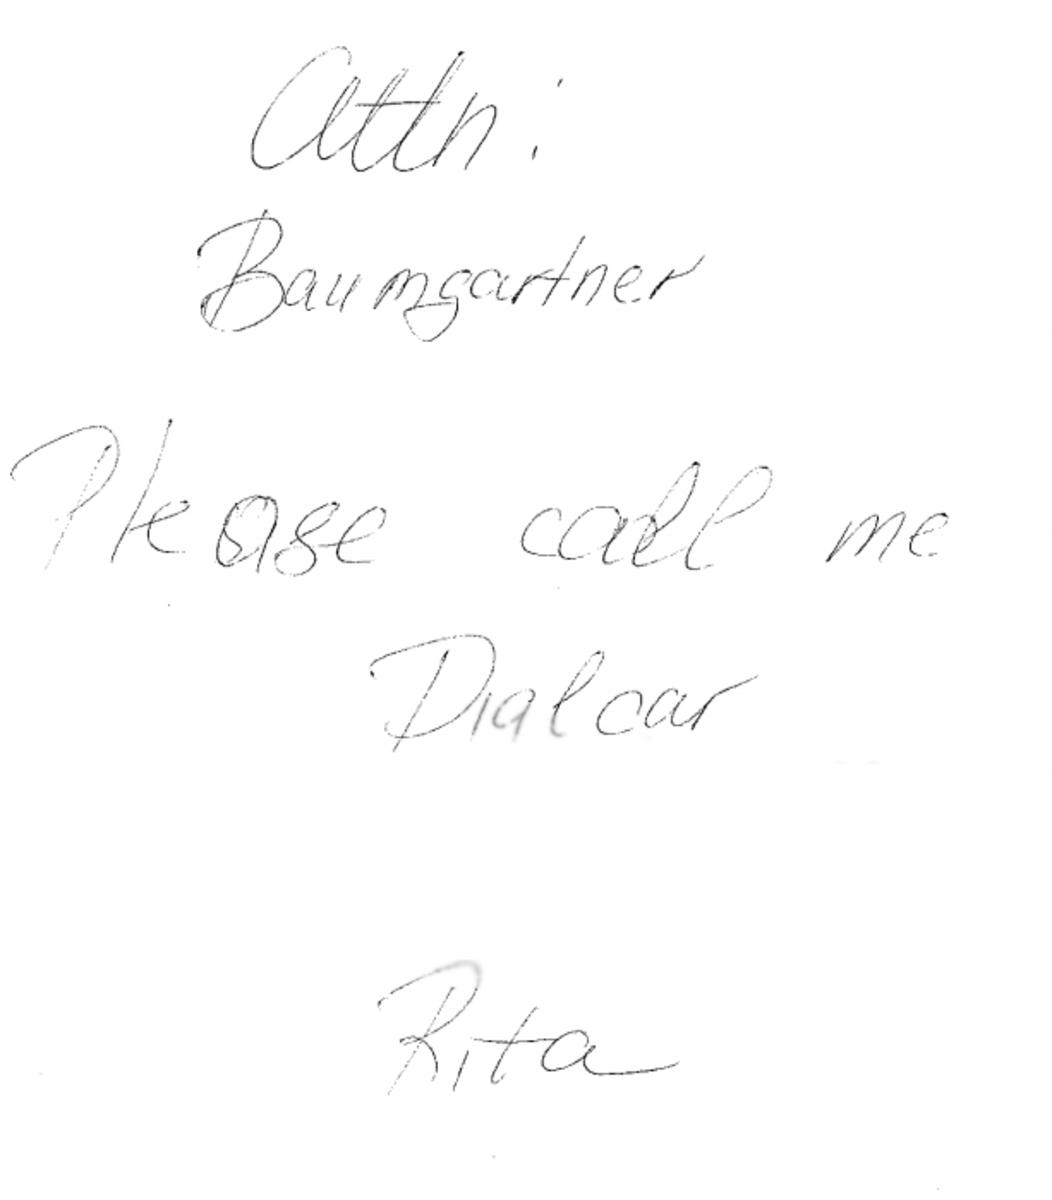 Attn:
Baumgartner
Please call me
Dialcar
Rita